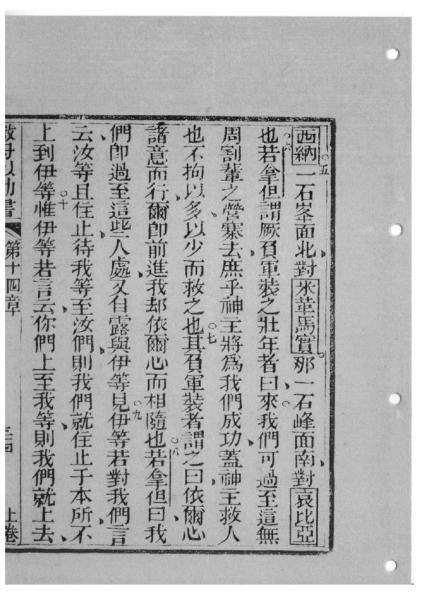 西納一石峯面北對米革馬實那一石峰面南對哀比亞
也若拿但謂厥負軍裝之壯年者曰來我們可過至這無
周割輩之營寨去庶乎神主將為我們成功蓋神主救人
也不拘以多以少而救之也其負軍裝者謂之曰依爾心
諸意而行爾即前進我却依爾心而相隨也若拿但曰我
們即過至這些人處又自露與伊等見伊等若對我們言
云汝等且住止待我等至汝們則我們就住止于本所不
上到伊等惟伊等若言云你們上至我等則我們就上去
第十四章
上卷